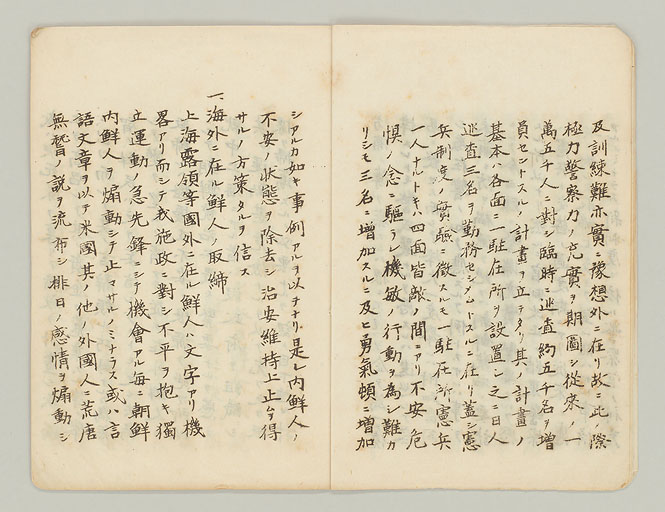 及訓練難亦實ニ豫想外ニ在リ故ニ此ノ際
極力警察力ノ充實ヲ期圖シ従来ノ一
萬五千人ニ對シ臨時ニ巡査約五千名ヲ増
員セントスルノ計畫ヲ立テタリ其ノ計畫ノ
基本ハ各面ニ一駐在所ヲ設置シ之ニ日人
巡査三名ヲ勤務セシメムトスルニ在リ蓋シ憲
兵制度ノ實驗ニ徴スルモ一駐在所憲兵
一人ナルトキハ四面皆敵ノ間ニアリ不安危
惧ノ念ニ驅ラレ機敏ノ行動ヲ為シ難カ
リシモ三名ニ増加スルニ及ヒ勇氣頓ニ増加
シアルカ如キ事例アルヲ以テナリ是レ内鮮人ノ
不安ノ状態ヲ除去シ治安維持上止ムヲ得
サルノ方策タルヲ信ス
一、海外ニ在ル鮮人ノ取締
上海露領等國外ニ在ル鮮人ハ文字アリ機
畧アリ而シテ我施政ニ對シ不平ヲ抱キ獨
立運動ノ急先鋒ニシテ機會アル毎ニ朝鮮
内鮮人ヲ煽動シテ止マサルノミナラス或ハ言
語文章ヲ以テ米國其ノ他ノ外國人ニ荒唐
無稽ノ説ヲ流布シ排日ノ感情ヲ煽動シ